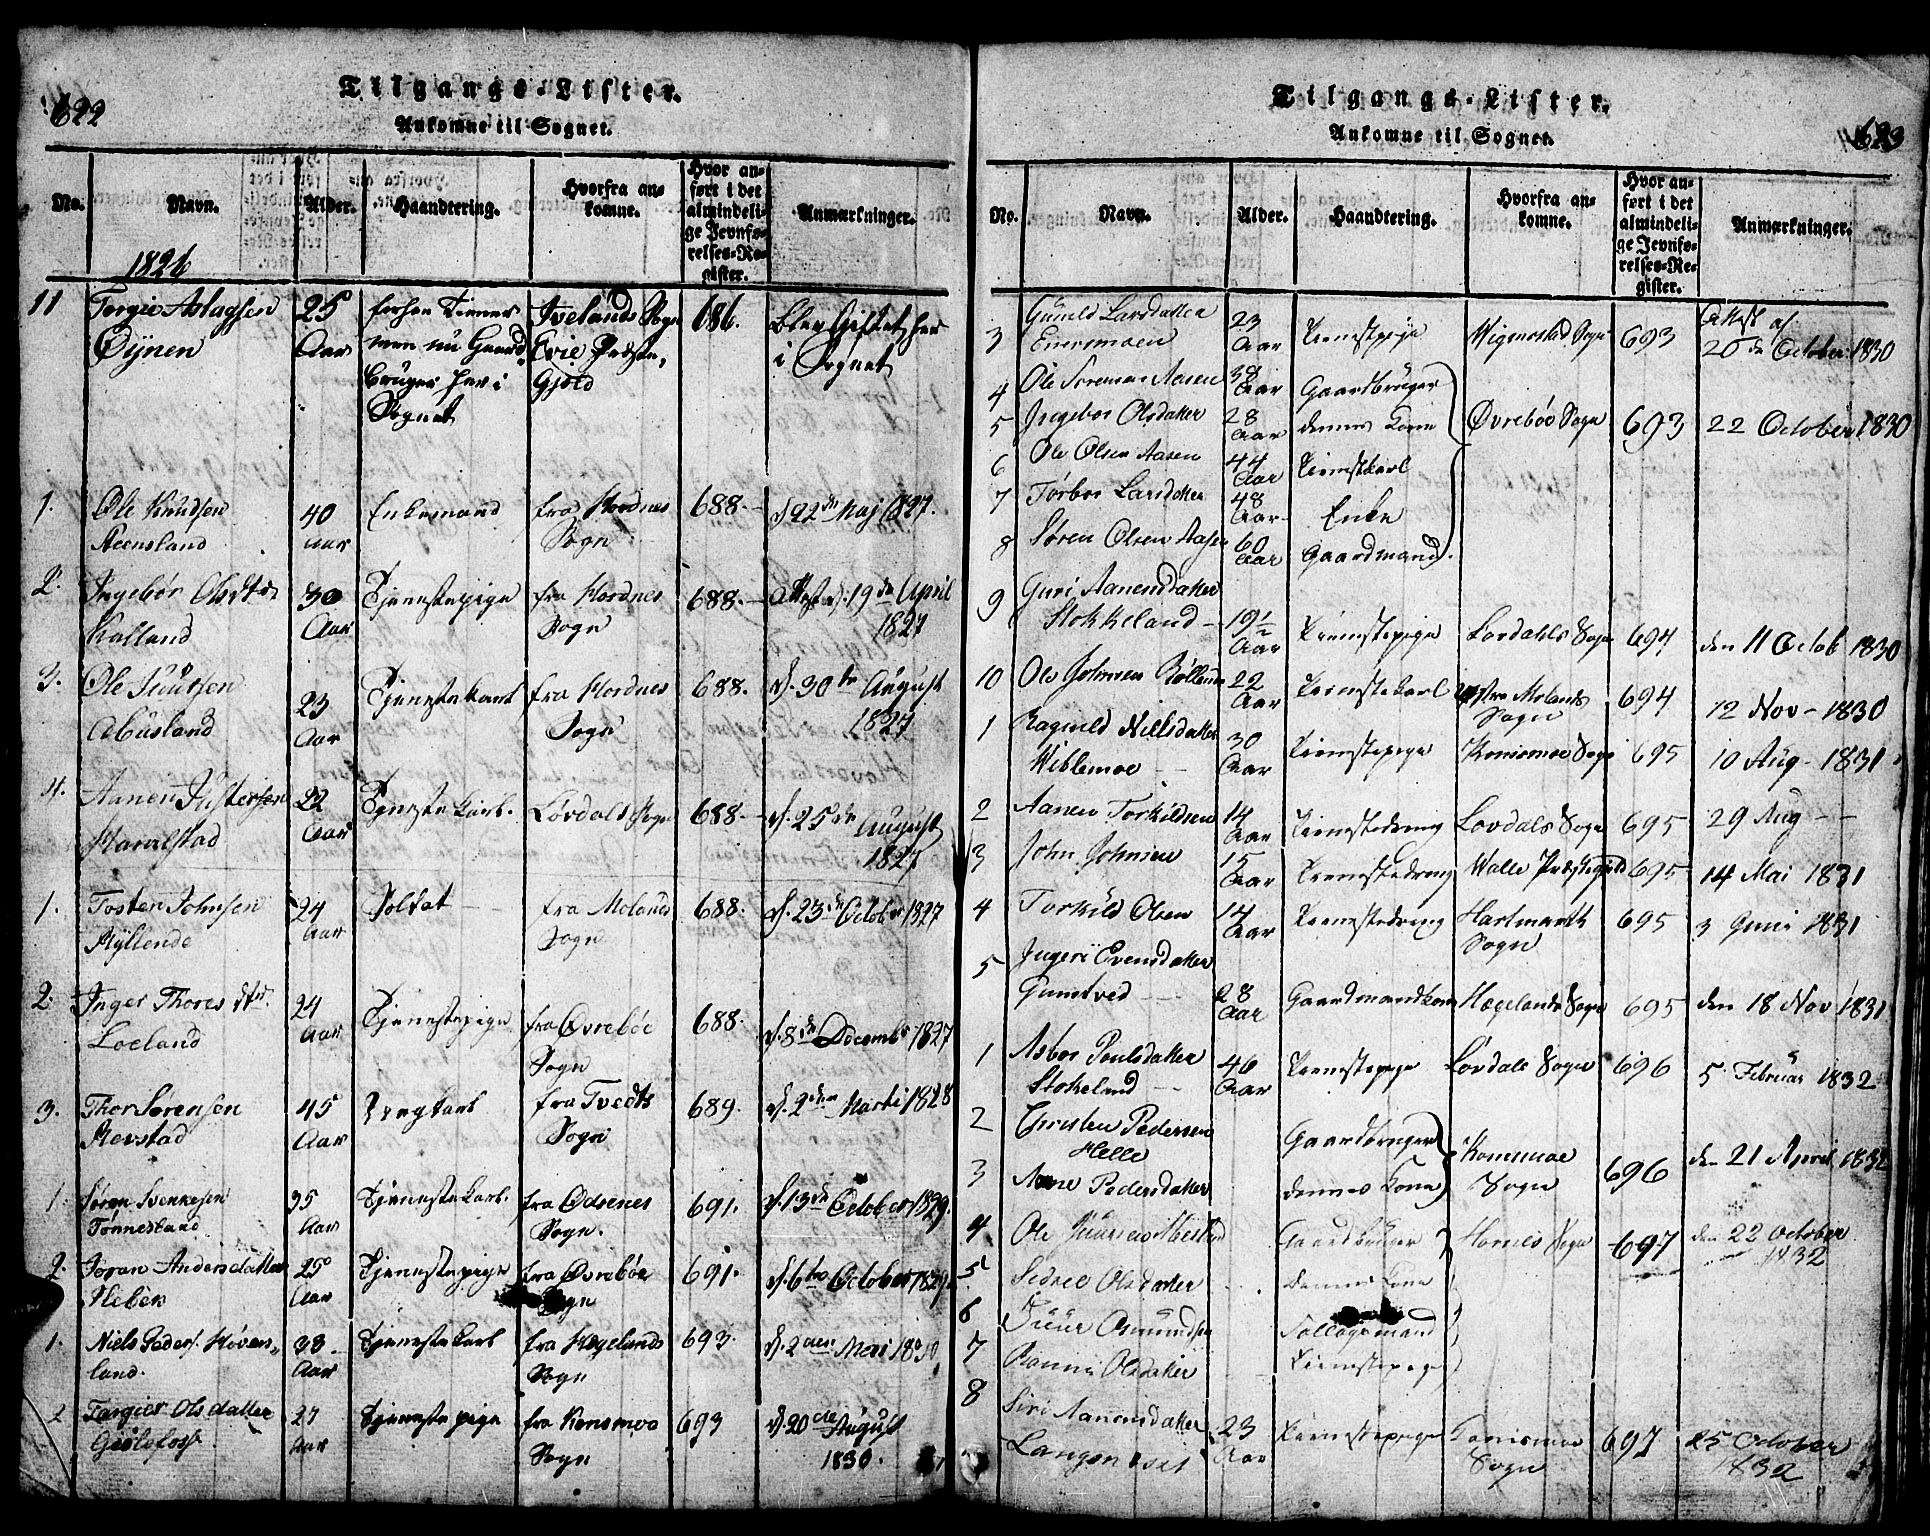 622
Tilgangs-Lister.
Ankomne til Sognet.
No. Navn. Alder. Haandtering. Hvorfra ankomne. Hvor anført i det almindelige Jevnførelses-Register. Anmærkninger.
1826
11 Tergie Aslagsen 25 forhen Tienes Ivelands Sogn 686. Blev Giftet her
Øÿnen Aar man nu Gaard Evie Præste i Sognet
bruger her i Gjeld
Sognet
1. Ole Knudsen 40 Enkemand fra Hordnes 688. d. 22de Maj 1827.
Aar Sogn
2. Ingebor Olsdtr 30 Tjenestepige fra Hordnes 688. Attest d. 19de April
Kalland Aar Sogn 1827
3. Ole Knutsen 23 Tjenestekarl fra Hordnes 688. d. 30te August
Abusland Aar Sogn 1827
4. Aanen 22 Tjenestekarl. Løvdals Sogn 688. d. 25de August
Aar 1827
1. Tosten Johnsen 24 Soldat fra Molands 688. d. 23de October 1827
Ryllende Aar Sogn
2. Inger Thores dtr. 24 Tjenestepige fra Øvrebøe 688. d. 8de Decembr 1827
Loeland Aar Sogn
3. Thor Sørensen 45 fra Tvedts 689. d. 2den Marti 1828
Revstad Aar Sogn
1. Søren Svenkesen 35 Tjenestekarl. fra Odesnes 691. d. 13de October 1829.
Tønnesland Aar Sogn.
2. Joran Andersdatter 25 Tjenestepige fra Øvrebøe 691. d. 6te October 1829
Aar Sogn
1. Niels Peders. Høvers 33 Tjenestekarl fra Hægelands 693. d. 2den Mai 1830
land. Aar Sogn
2 Targier Olsdatter 27 Tjenestepige fra Konsmoe 693 d. 20de August
Aar Sogn 1830.
623
Tilgangs-Lister.
Ankomne til Sognet.
No. Navn. Alder. Haandtering. Hvorfra ankomne. Hvor anført i det almindelige Jevnførelses-Register. Anmærkninger.
3 Gunild Larsdatter 23 Tienestepige Wigmostad Sogn 693 Attest af
Aar 20de October 1830
4 Ole Aasen 38 Aar Gaardbruger
5 Ingebor Olsdatter 28 Aar dennes Kone Øvrebøe Sogn 693 22 October 1830
6 Ole Olsen Aasen 44 Aar Tienestekarl
7 Tørbor Larsdatter 48 Aar Enke
8 Søren Olsen Aasen 60 Aar Gaardmand.
9 Guri Aanensdatter
Stokkeland 19½ Aar Tienestepige Løvdahls Sogn 694 den 11 Octob 1830
10 Ole Johnsen 22 Aar Tienestekarl Molands Sogn 694 12 Nov 1830
1 Ragnild Nielsdatter 30 Aar Tienestepige Konsmoe Sogn 695 10 Aug 1831
Wiblemoe
2 Aanen Torkildsen 14 Aar Tienestedreng Lovdals Sogn 695 29 Aug
3 John Johnsen 15 Aar Tienestedreng Halle Præstegield 695 14 Mai 1831
4 Torkild Olsen 14 Aar Tienestedreng Hartmarck Sogn 695 3 Juni 1831
5 Ingeri Evensdatter
28 Aar Gaardmandkone Hægelands Sogn 695 den 18 Nov 1831
1 Asbor Poulsdatter 46 Aar Tienestepige Løvdals Sogn 696 5 Februar 1832
Stokeland
2 Christen Pedersen Gaardbruger Konsmoe 696 den 21 April 1832
Helle
3 Anne Pedersdatter dennes Kone Sogn
4 Ole Gaardbruger Hornes Sogn 697 den 22 October
1832
5 Olsdatter dennes Kone
6 Omundsen Follogsmand
7 Ranni Olsdatter Tienestepige
8 Siri Aanensdatter 23 Aar Tienestepige Konismoe Sogn 697 25 October
1832